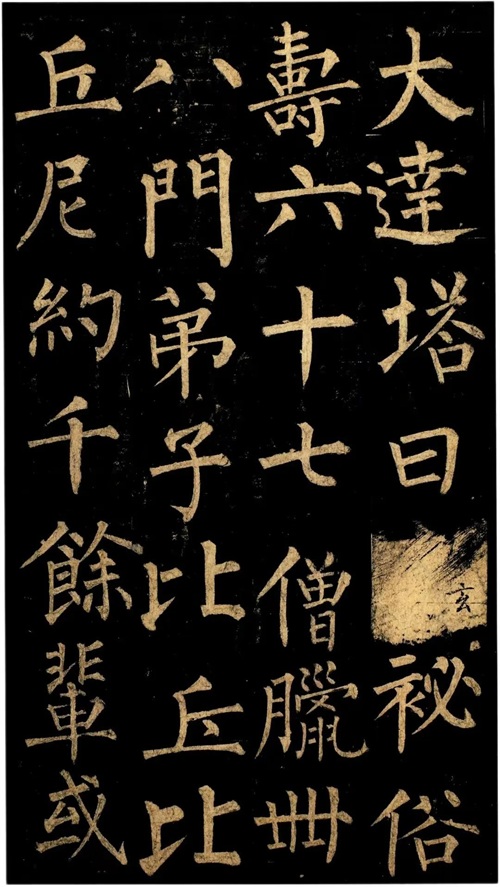 大達塔曰玄祕俗
壽六十七僧臘卌
八門弟子比丘比
丘尼約千餘輩或